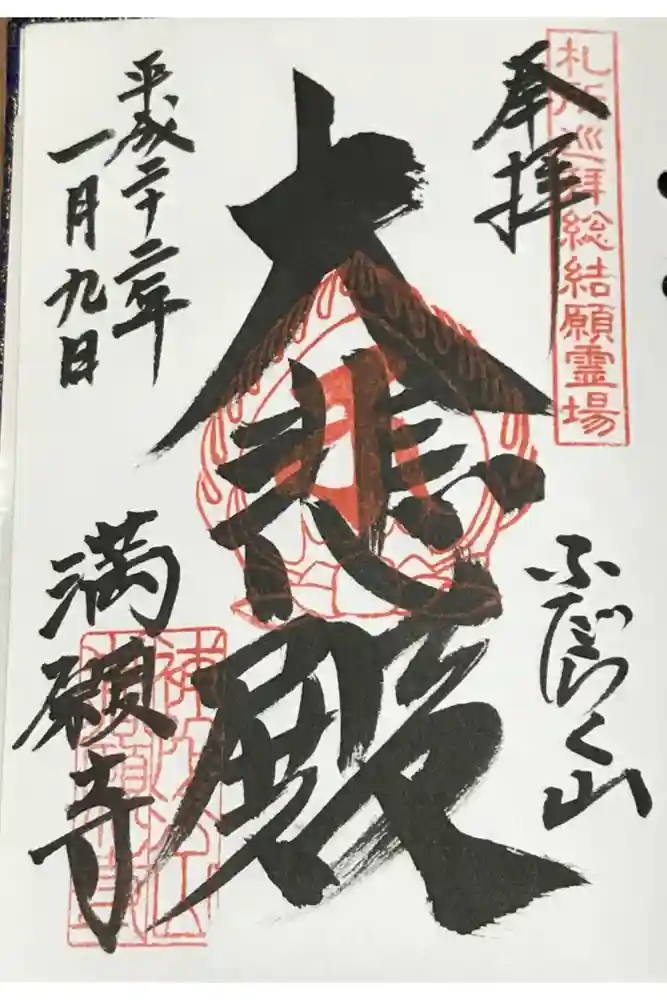 札所巡拝総結願霊場
奉拝
ふだらく山
大悲殿
平成二十二年
一月九日
満願寺